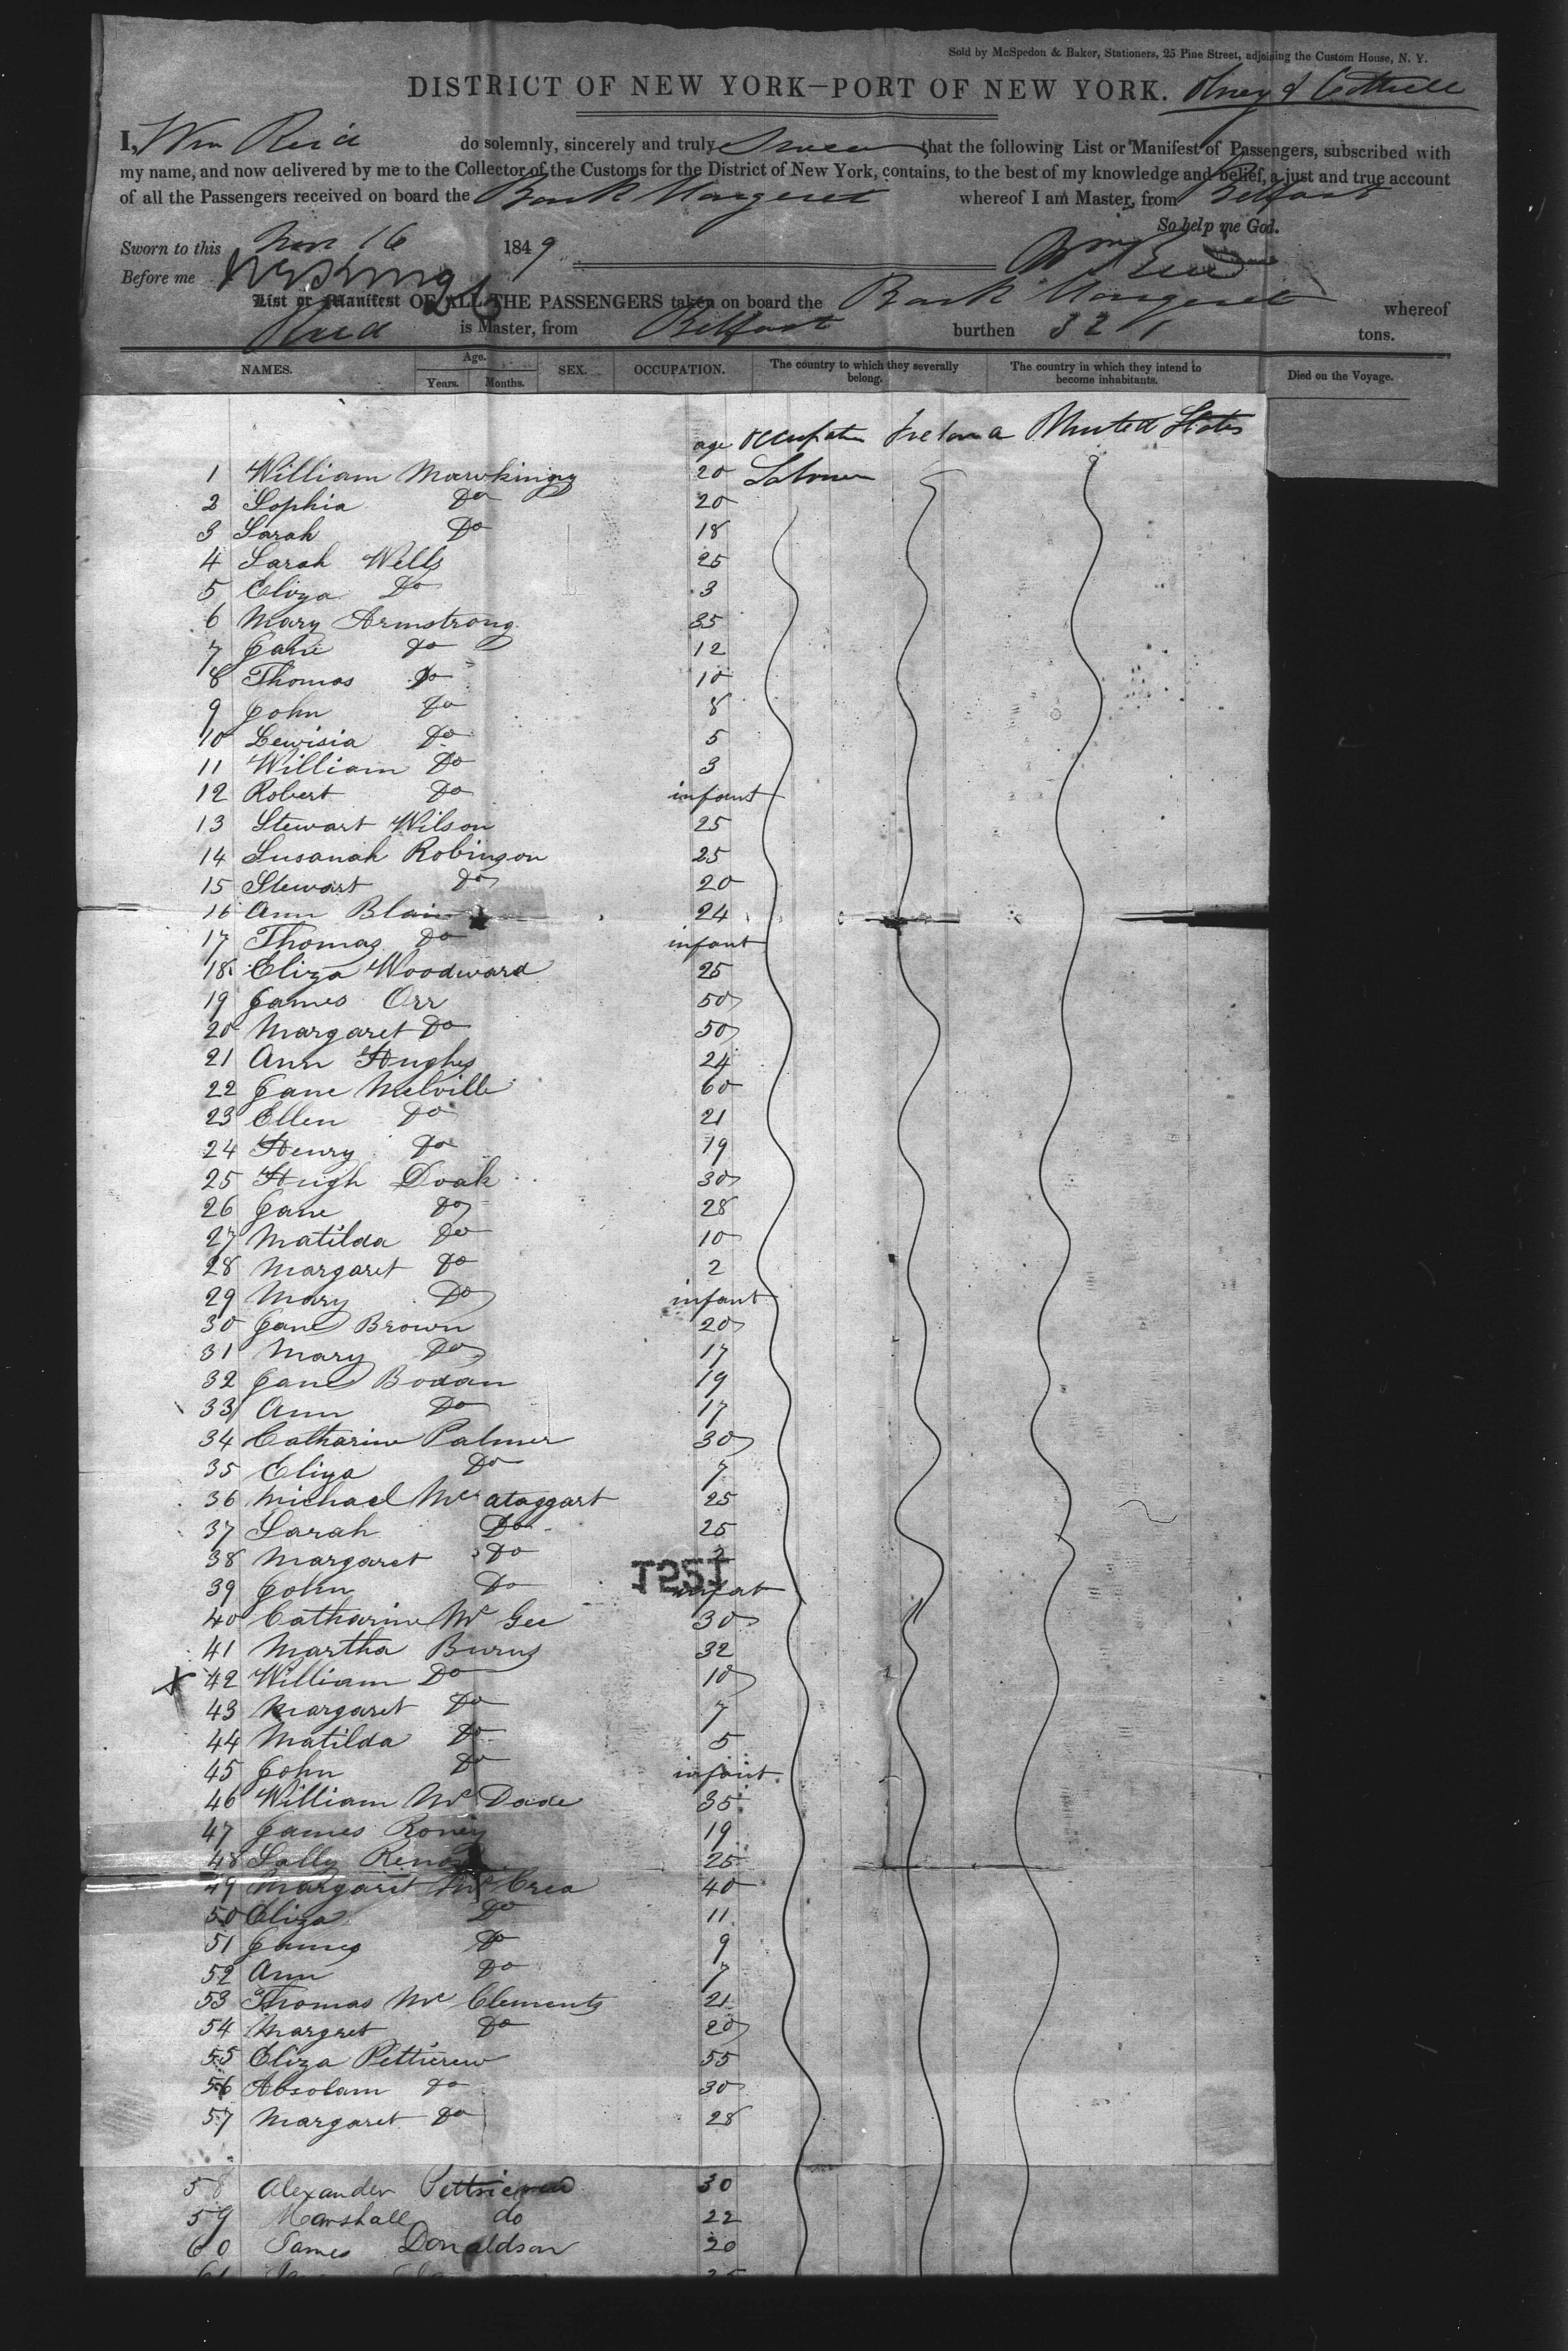 Sold by McSpedon & Baker, Stationers, 25 Pine Street, adjoining the Custom House, N. Y.
DISTRICT OF NEW YORK—PORT OF NEW YORK.
I, Wm Reid do solemnly, sincerely and truly Swear that the following List or Manifest of Passengers, subscribed with
my name, and now delivered by me to the Collector of the Customs for the District of New York, contains, to the best of my knowledge and belief, a just and true account
of all the Passengers received on board the Bark Margeret whereof I am Master, from Belfast
So help me God.
Sworn to this Nov 16 1849 Wm Reid
Before me
List or Manifest OF ALL THE PASSENGERS taken on board the Bark Margeret whereof
Reid is Master, from Belfast burthen 321 tons.
NAMES. Age. Years. Months. SEX. OCCUPATION. The country to which they severally belong. The country in which they intend to become inhabitants. Died on the Voyage.
age occupation Ireland United States
1 William Mawkinny 20 Labourer
2 Sophia Do 20
3 Sarah Do 18
4 Sarah Wells 25
5 Eliza Do 3
6 Mary Armstrong 35
7 Jane do 12
8 Thomas Do 10
9 John Do 8
10 Lewisia Do 5
11 William Do 3
12 Robert Do infant
13 Stewart Wilson 25
14 Susanah Robinson 25
15 Stewart Do 20
16 Ann Blair 24
17 Thomas Do infant
18 Eliza Woodward 25
19 James Orr 50
20 Margaret Do 50
21 Ann Hughes 24
22 Jane Melville 60
23 Ellen Do 21
24 Henry Do 19
25 Hugh Doak 30
26 Jane Do 28
27 Matilda Do 10
28 Margaret Do 2
29 Mary Do infant
30 Jane Brown 20
31 Mary Do 17
32 Jane Bodan 19
33 Ann Do 17
34 Catharine Palmer 30
35 Eliza Do 7
36 Michael Mc ataggart 25
37 Sarah Do 25
38 Margaret Do 2
39 John Do infat
40 Catharine Mc Gee 30
41 Martha Burns 32
42 William Do 10
43 Margaret Do 7
44 Matilda Do 5
45 John Do infant
46 William Mc Dade 35
47 James Roney 19
48 Sally 25
49 Margaret Mc Crea 40
50 Eliza Do 11
51 James Do 9
52 Ann Do 7
53 Thomas Mc Clements 21
54 Margret Do 20
55 Eliza Petticrew 55
56 Absolam do 30
57 Margaret Do 28
58 Alexander Petticrew 30
59 Marshall do 22
60 James Donaldson 20